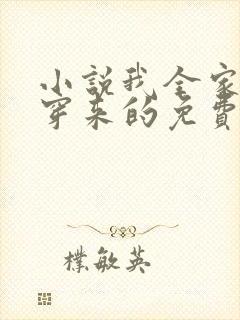 小說我全家
穿來的免費
樸敏英